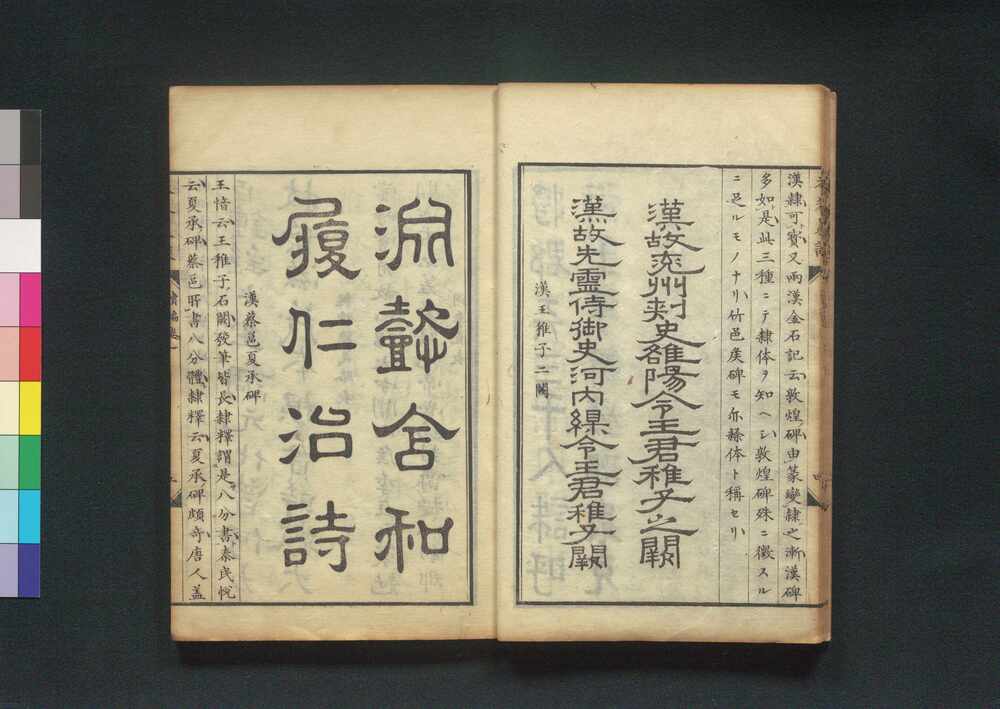 漢隷可寳又兩漢金石記云敦煌碑由篆變隷之漸漢碑
多如是此三種ニテ隷体ヲ知ヘシ敦煌碑殊ニ徴スル
ニ足ルモノナリ竹邑侯碑モ亦隷体ト稱セリ
漢故兗州刾史雒陽令王君稚子之闕
漢故先靈侍御史河内緱令王君稚子闕
漢王稚子二闕
淵懿含和
履仁治詩
漢蔡邕夏承碑
王愔云王稚子石闕發筆皆長隷釋謂是八分書泰民悅
云夏承碑蔡邕所書八分體隷釋云夏承碑頗奇唐人盖